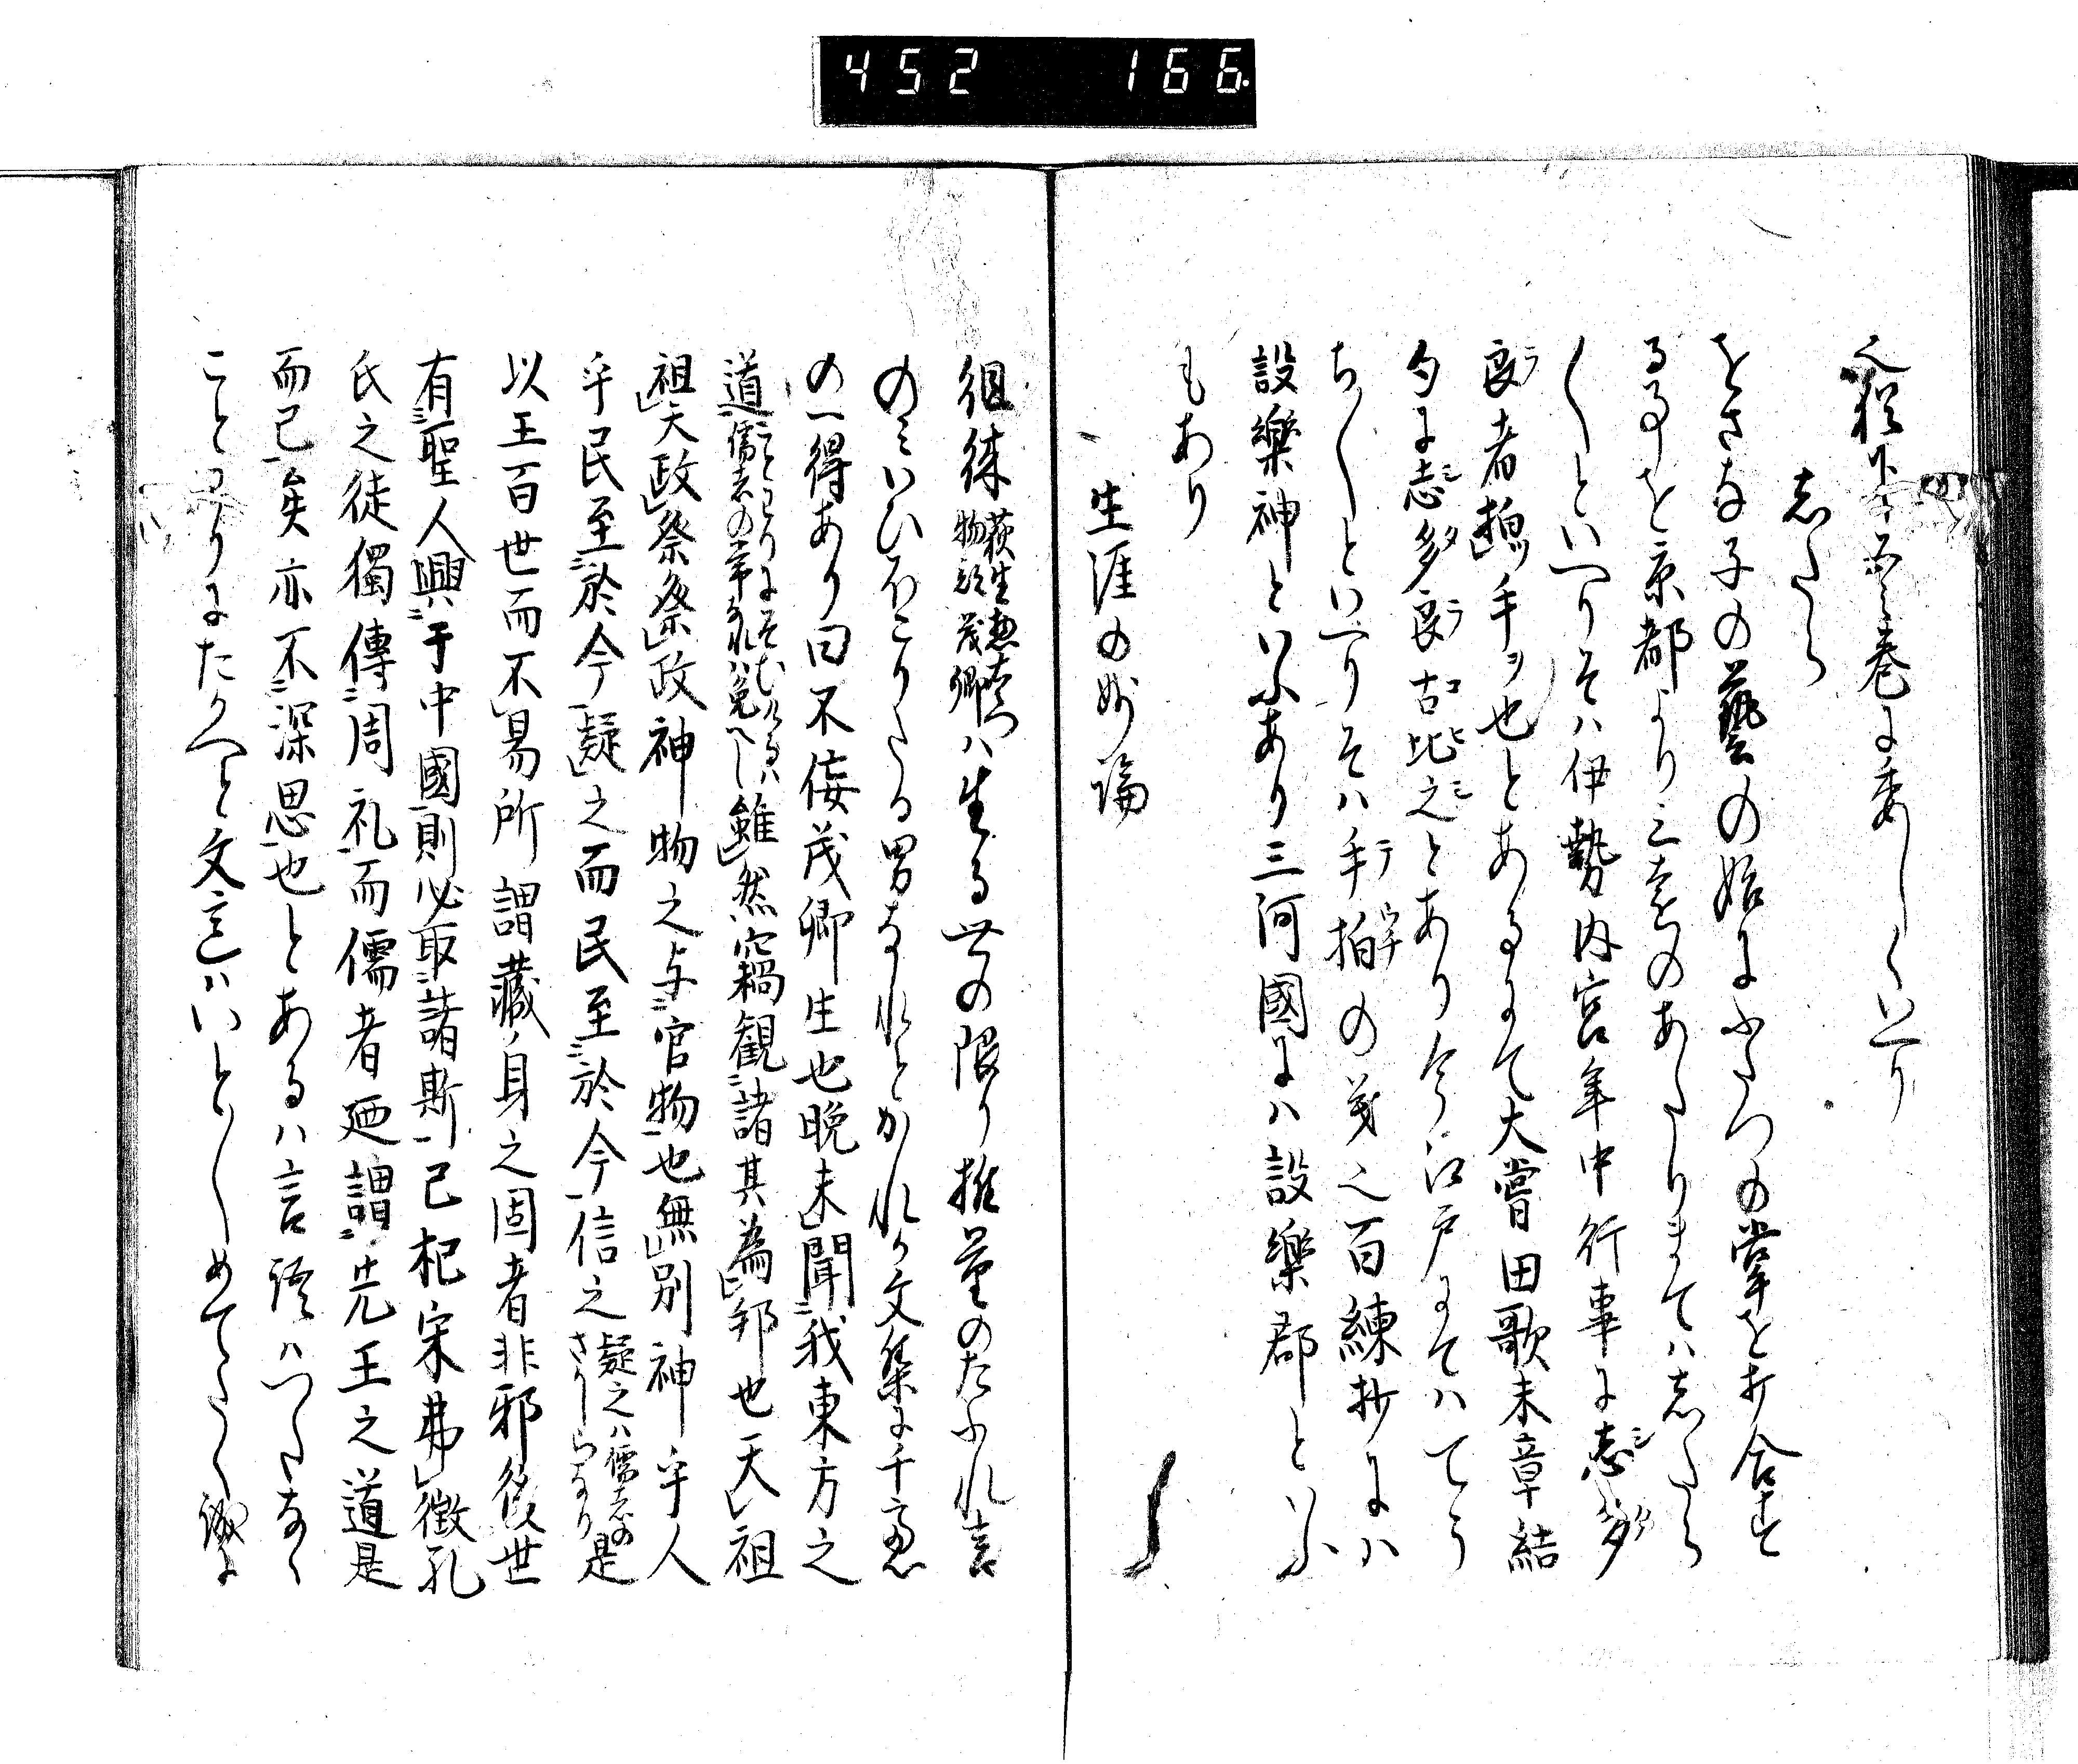 452 166
之程下学る巻に委しくいへり
志たら
をさな子の藝の始にふたつの掌を打合す
る事を京都より三奈のあたりまては志たら
〳〵といへりそは伊勢内宮年中行事に志多
良者摠手ヲ也とあるにて大嘗田歌末章結
句に志多良古比之とあり今江戸にてはてう
ち〳〵といへりそは手拍の義之百練抄には
設樂神といふあり三河國には設樂郡といふ
もあり
生涯の妙論
徂徠荻生惣右衛門物部茂卿は生る世の限り推量のたふれ言
のみいひほこりたる男なれとかれか文集に千慮
の一得あり曰不佞茂卿生也晩未聞我東方之
道ことわりにそむけるハ儒者の常なれハ免へし雖然竊観諸其為邦也天祖
祖天政祭祭政神物之与官物也無別神乎人
乎民至於今疑之而民至於今信之疑之ハ儒者のさかしらなり是
以王百世而不易所謂藏身之固者非邪後世
有聖人興于中國則必取諸斯已杞宋弗徴孔
氏之徒獨傳周礼而儒者廼謂先王之道是
而已矣亦不深思也とあるは言語はつたなく
ことわりにたかへと文意はいと〳〵めてたく誠に